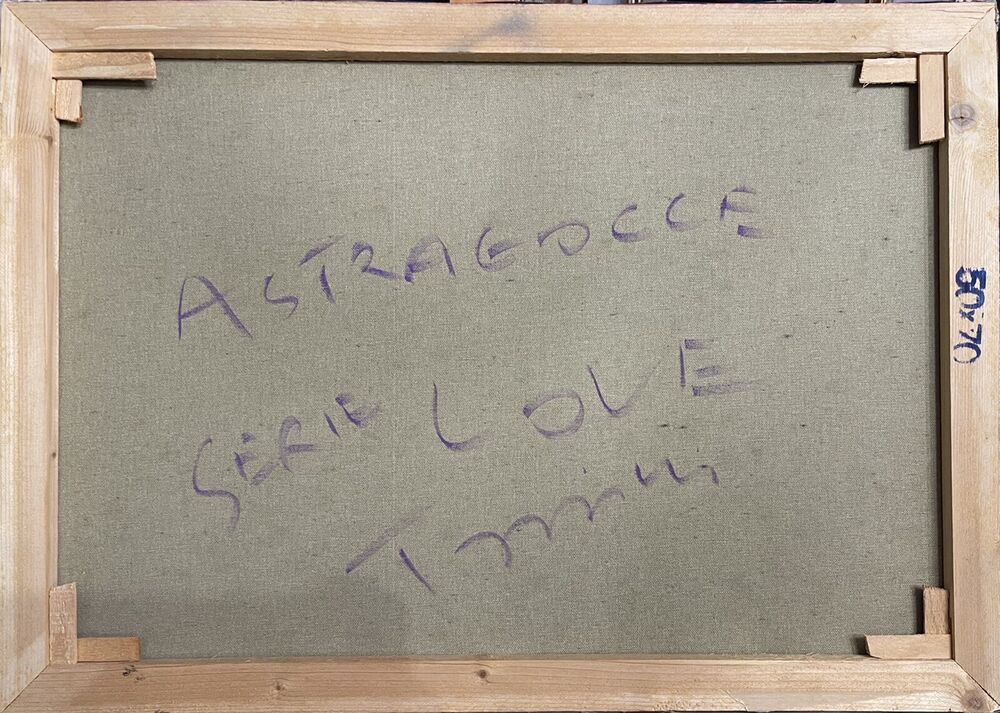 ASTRAGOCCE
SERIE LOVE
50x70